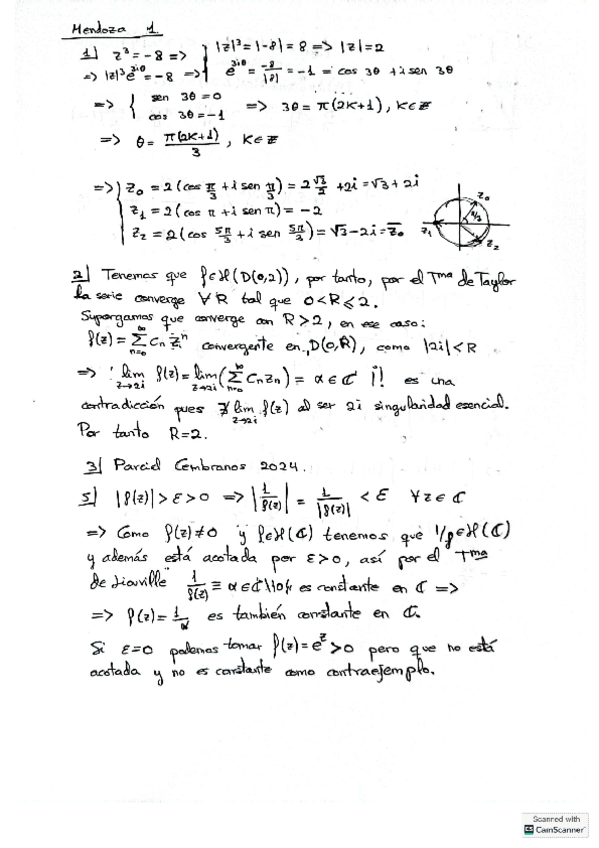 Mendoza 1.
1) z³ = -8 => { |z|³ = |-8| = 8 => |z| = 2
=> |z|³e^{3iθ} = -8 => { e^{3iθ} = -8/|8| = -1 = cos 3θ + i sen 3θ
=> { sen 3θ = 0
cos 3θ = -1 => 3θ = π(2K+1), K∈Z
=> θ = π(2K+1)/3, K∈Z
=> { z₀ = 2(cos π/3 + i sen π/3) = 2 √3/2 + 2i = √3 + 2i
z₁ = 2(cos π + i sen π) = -2
z₂ = 2(cos 5π/3 + i sen 5π/3) = √3 - 2i = z̄₀
z₀
π/3
z₁
z₂
2) Tenemos que f∈H(D(0,2)), por tanto, por el Tma de Taylor
la serie converge ∀R tal que 0<R≤2.
Supongamos que converge con R>2, en ese caso:
f(z) = ∑_{n=0}^{∞} Cₙ zⁿ convergente en D(0,R), como |2i|<R
=> ∃ lim_{z→2i} f(z) = lim_{z→2i} (∑_{n=0}^{∞} Cₙzₙ) = α∈ℂ ¡! es una
contradicción pues ∄ lim_{z→2i} f(z) al ser 2i singularidad esencial.
Por tanto R=2.
3) Parcial Cembranos 2024.
5) |f(z)| > ε > 0 => |1/f(z)| = 1/|f(z)| < ε ∀z∈ℂ
=> Como f(z)≠0 y f∈H(ℂ) tenemos que 1/f∈H(ℂ)
y además está acotada por ε>0, así por el Tma
de Liouville 1/f(z) ≡ α∈ℂ\{0} es constante en ℂ =>
=> f(z) = 1/α es también constante en ℂ.
Si ε=0 podemos tomar f(z)=e^z>0 pero que no está
acotada y no es constante como contraejemplo.
Scanned with
CamScanner